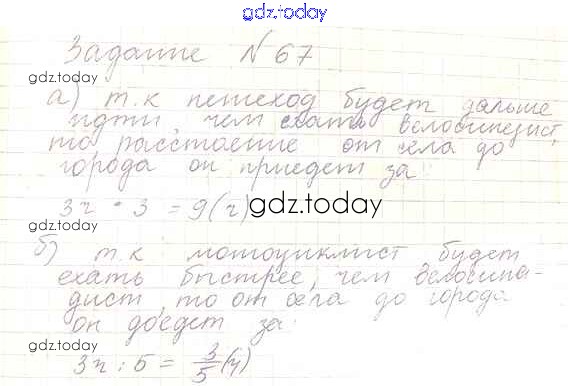 gdz.today
Задание № 67
gdz.today
а) т.к пешеход будет дальше
идти, чем ехать велосипедист,
то расстояние от села до
города он приедет за
3ч · 3 = 9(ч)
gdz.today
gdz.today
б) т.к мотоциклист будет
ехать быстрее, чем велосипе-
дист, то от села до города
он доедет за:
gdz.today
3ч : 5 = 3/5 (ч)
gdz.today